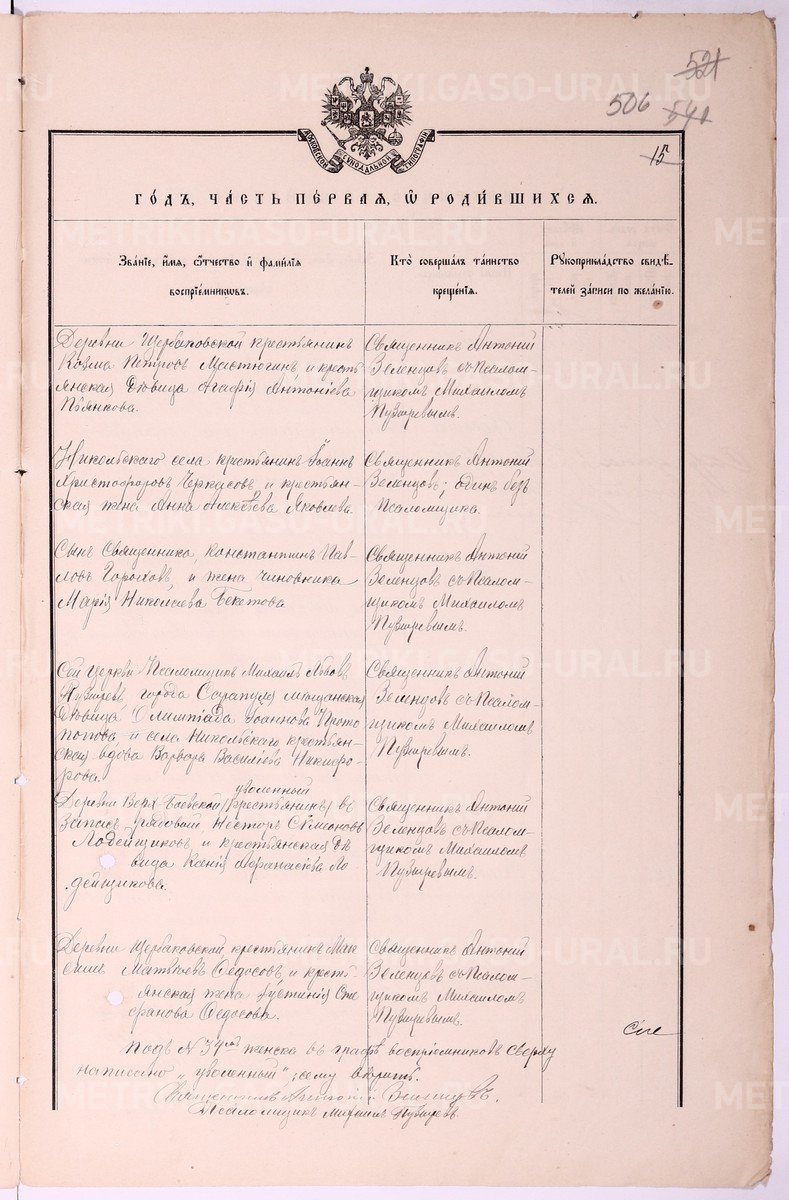 521
506 541
МОСКОВСКОЙ СѴНОДАЛЬНОЙ ТИПОГРАФІИ
15
ГО́ДЪ, ЧА́СТЬ ПЕ́РВАЯ, Ѽ РОДИ́ВШИХСЯ.
Зва́нїе, и҆́мя, ѻ҆́тчество и҆ фами́лїя
воспрїе́мниковъ.
Кто̀ соверша́лъ та́инство
креще́нїя.
Рꙋкоприкла́дство свидѣ́-
телей за́писи по жела́нїю.
Деревни Щербаковской крестьянинъ
Козма Петровъ Мастюгинъ, и кресть
янская дѣвица Агафія Антоніева
Пьянкова.
Священникъ Антоній
Зеленцовъ съ Псалом-
щикомъ Михаиломъ
Пузыревымъ.
Никольскаго села крестьянинъ Іоаннъ
Христофоровъ Черкасовъ и крестьян-
ская жена Анна Алексѣева Яковлева.
Священникъ Антоній
Зеленцовъ; одинъ безъ
Псаломщика.
Сынъ Священника, Константинъ Пав-
ловъ Гороховъ, и жена чиновника
Марія Николаева Бекетова
Священникъ Антоній
Зеленцовъ съ Псалом-
щикомъ Михаиломъ
Пузыревымъ.
Сей церкви Псаломщикъ Михаилъ Львовъ
Пузыревъ, города Сарапула мѣщанская
дѣвица Олимпіада Іоаннова Прото
попова и села Никольскаго крестьян-
ская вдова Варвара Василіева Никифо-
рова.
Священникъ Антоній
Зеленцовъ съ Псалом-
щикомъ Михаиломъ
Пузыревымъ.
уволенный
Деревни Верх-Баевской (крестьянинъ) въ
запасъ рядовой, Несторъ Симеоновъ
Лодейщиковъ, и крестьянская дѣ
вица Ксенія Афанасіева Ло-
дейщикова.
Священникъ Антоній
Зеленцовъ съ Псалом-
щикомъ Михаиломъ
Пузыревымъ.
Деревни Щербаковской, крестьянинъ Мак
симъ Матвѣевъ Ѳедосовъ, и кресть
янская жена Іустинія Сте
фанова Ѳедосова.
Священникъ Антоній
Зеленцовъ съ Псалом-
щикомъ Михаиломъ
Пузыревымъ.
Сіе
Подъ № 34 женска въ графѣ воспріемниковъ сверху
написано „уволенный“; сему вѣрить.
Священникъ Антоній Зеленцовъ.
Псаломщикъ Михаилъ Пузыревъ.
METRIKI.GASO-URAL.RU